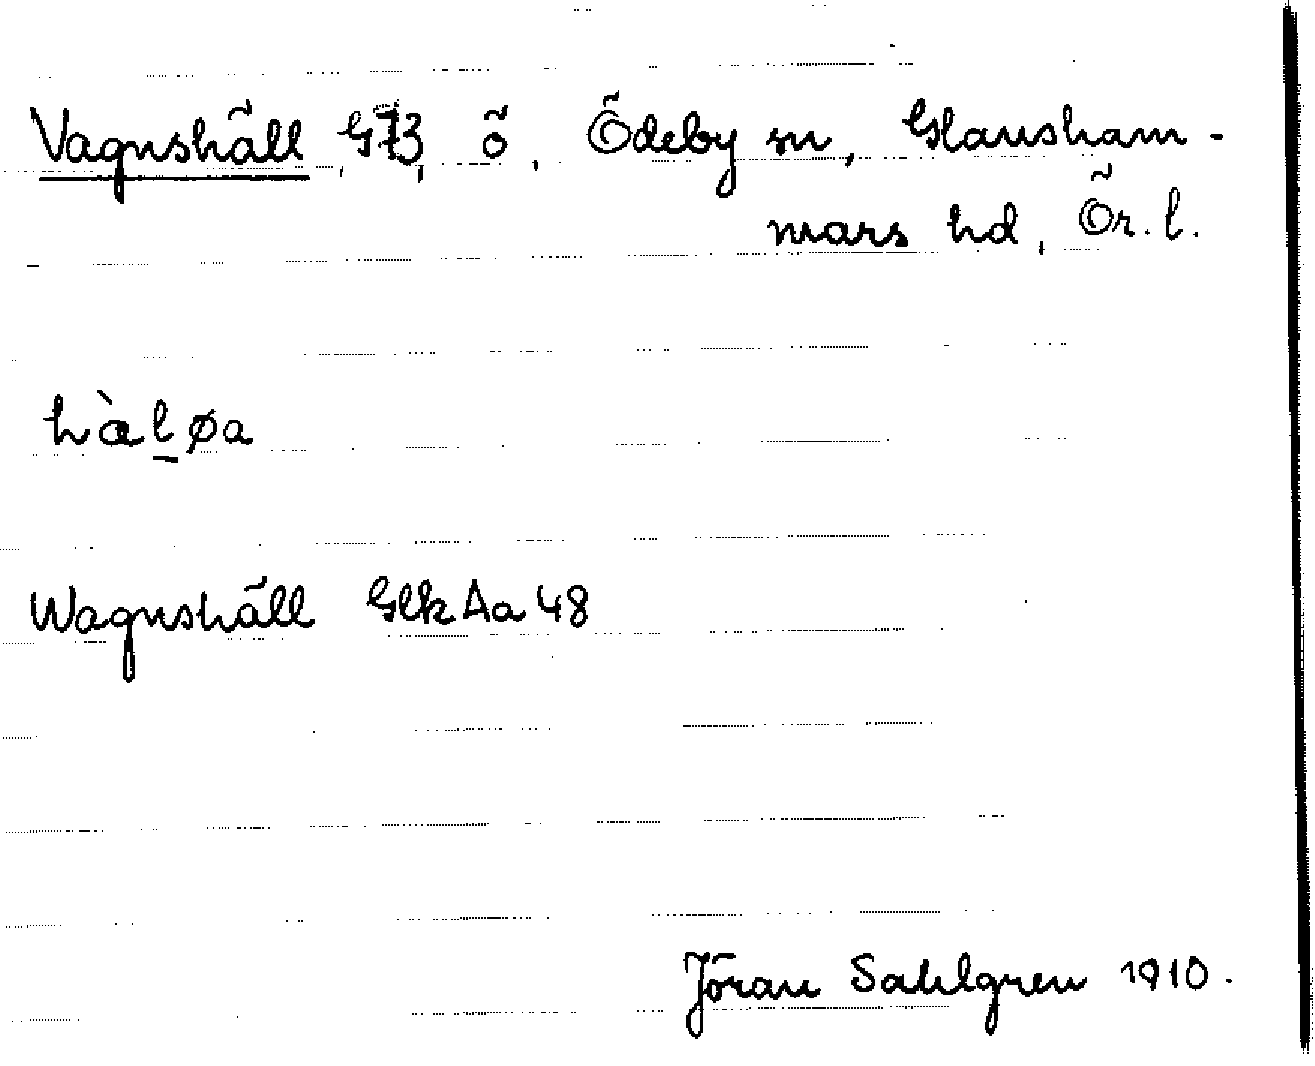 Vagnshäll, G73, ö, Ödeby sn, Glansham-
mars hd, Ör. l.
hàl̲øa
Wagnshäll GlkAa48
Jöran Sahlgren 1910.